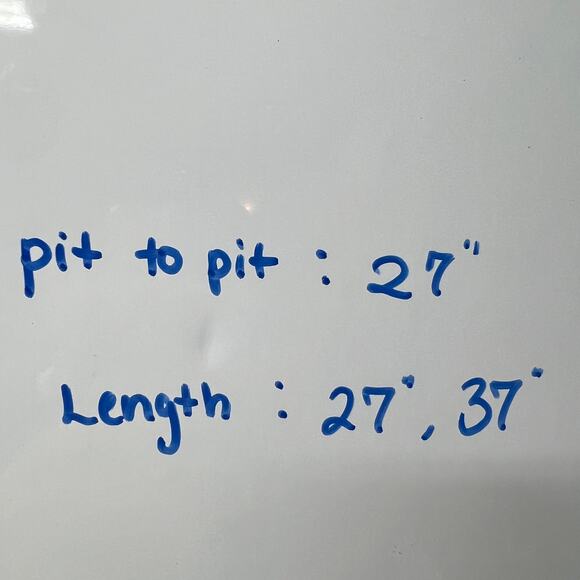 pit to pit : 27"
Length : 27", 37"